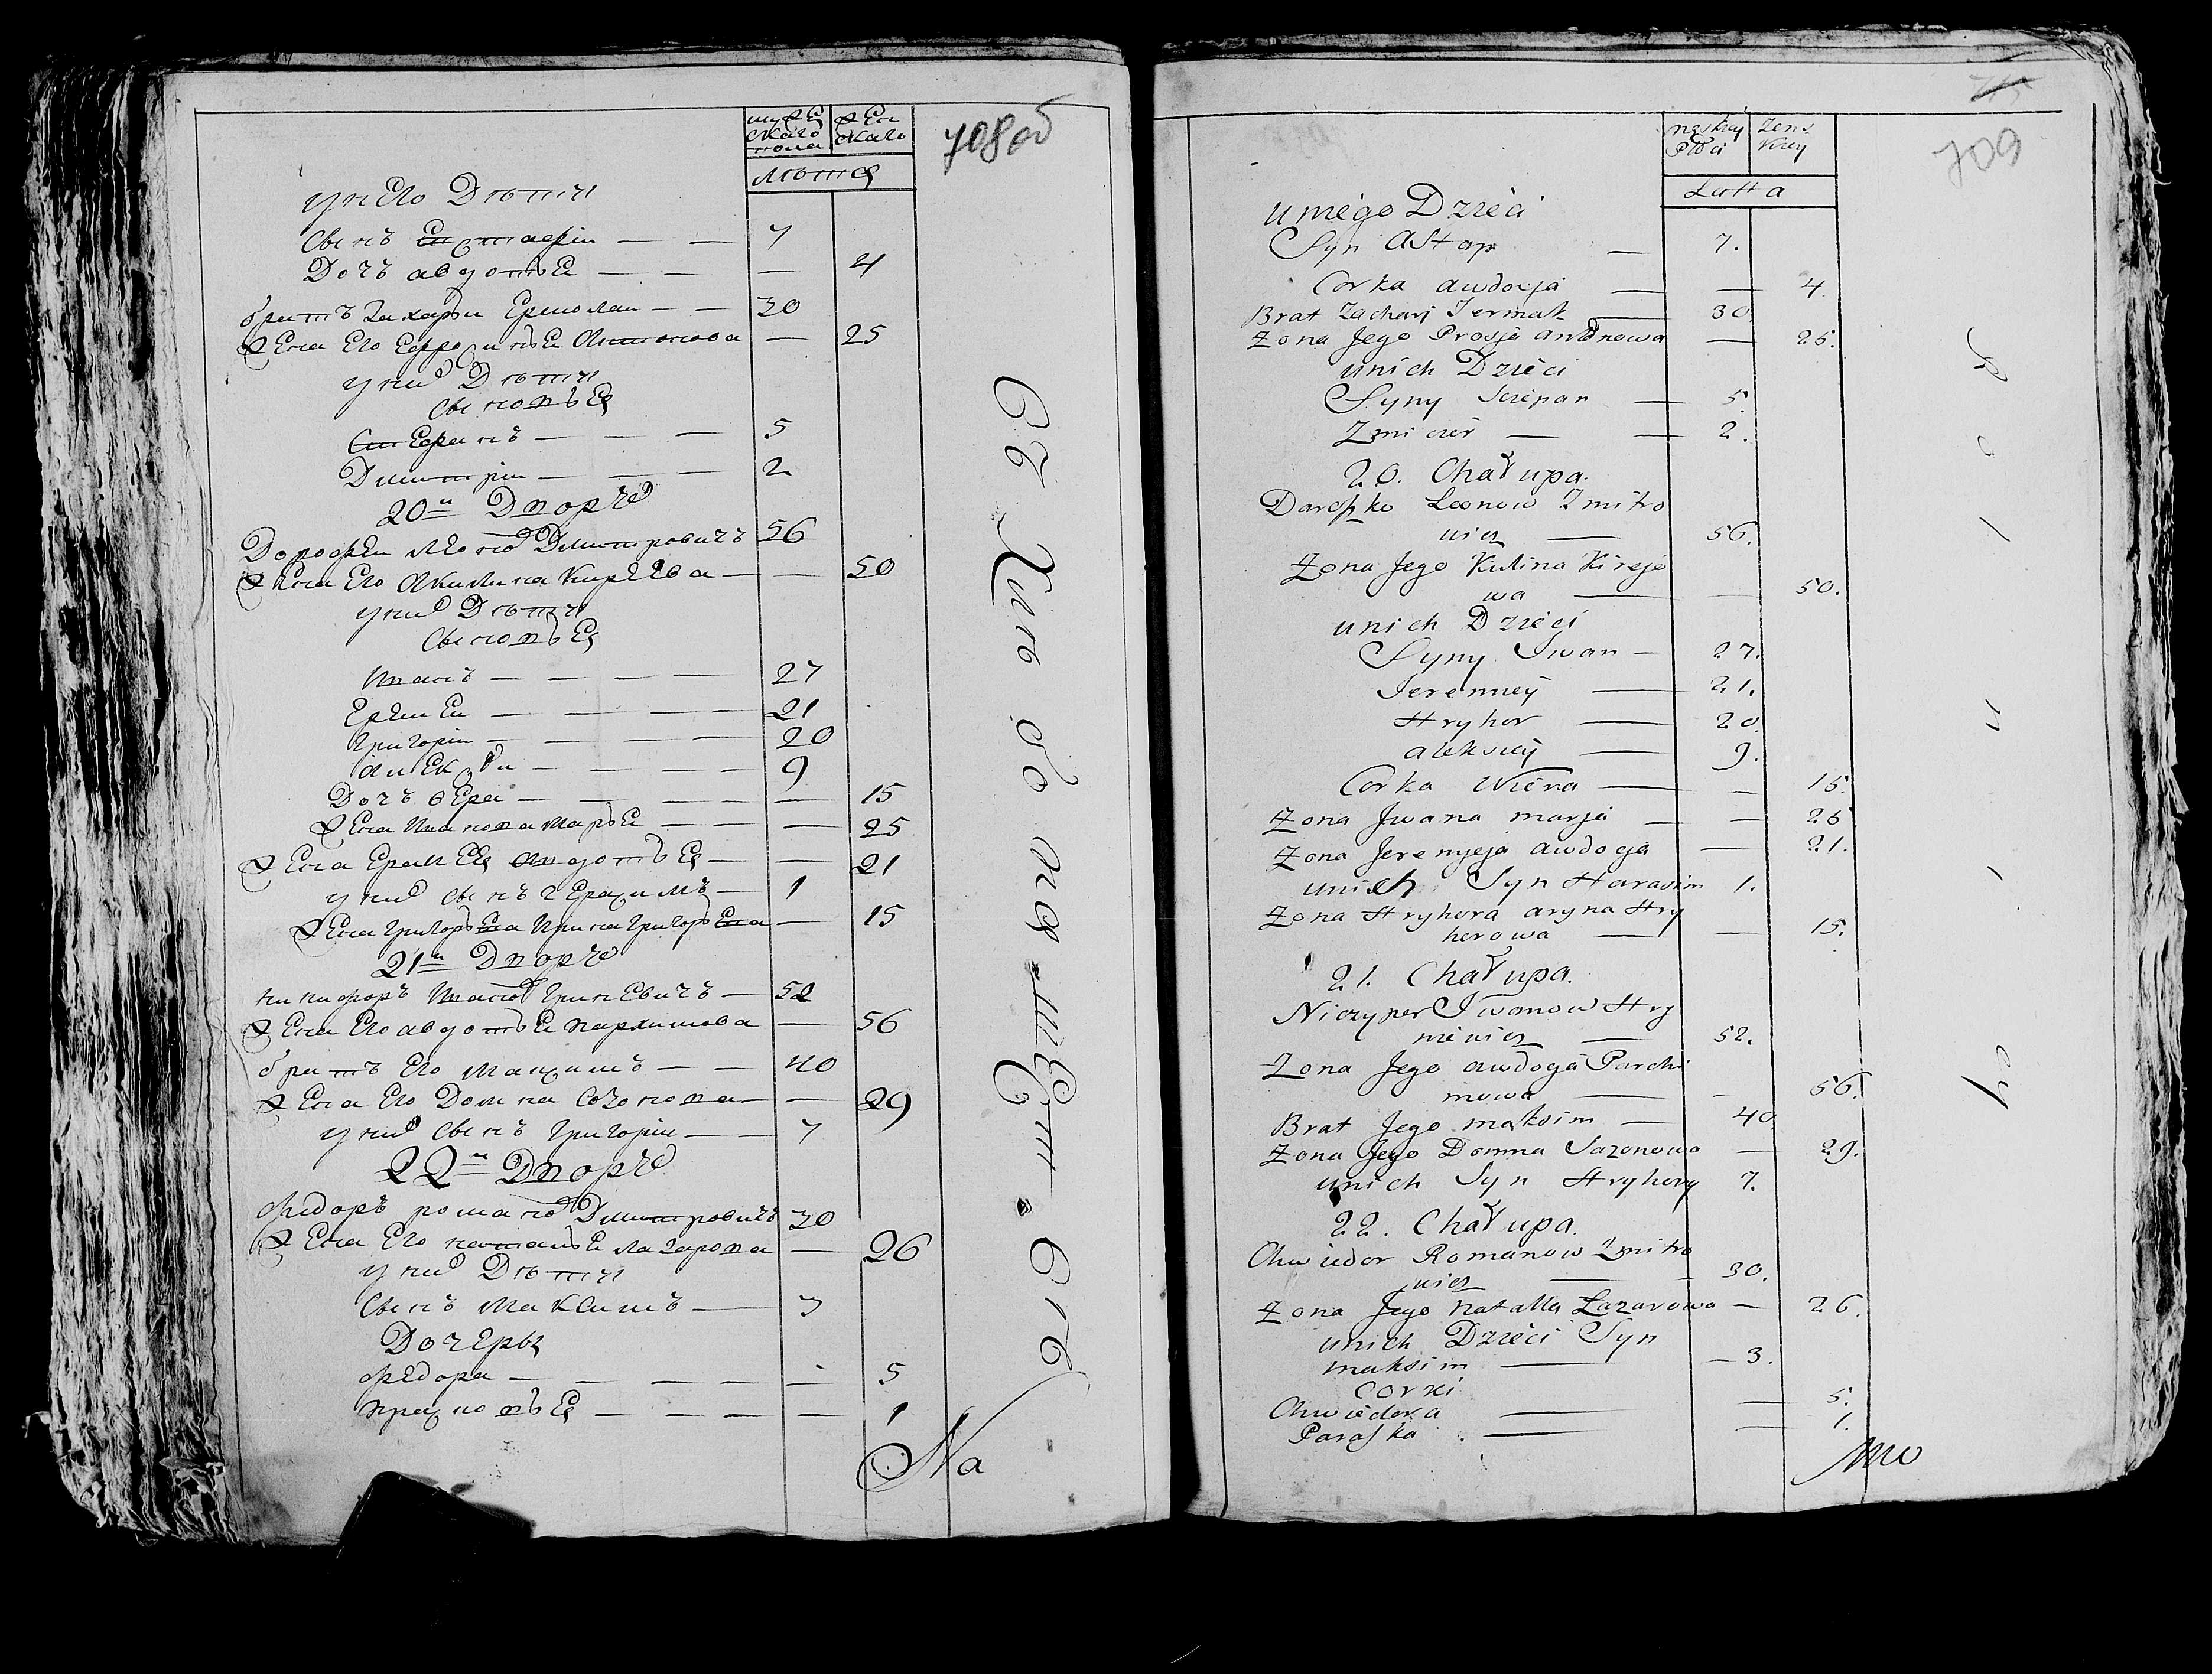 мужескаго пола
женскаго
708 об
Лѣта
у него Дѣти
Сынъ Евстафiи — — 7
Дочъ авдотья — — — 4
братъ Захарьи Ермолаи — — 30
Жена Его Ефросинья Антонова — 25
у них Дѣти
Сыновья
Стефанъ — — — 5
Дмитрiи — — — 2
20и Дворъ
Дорофеи Леонов Дмитровичъ 56
Жена Его Акилина Кирѣева — — 50
у них Дѣти
Сыновья
Иванъ — — — — 27
Еремеи — — — — 21
Григорiи — — — — 20
алексеи — — — — 9
Дочъ вера — — — — — 15
Жена Иванова Марья — — — 25
Жена Еремея Авдотья — — 21
у них сынъ Герасимъ — 1
Жена Григорьева Ирина Григорьева — 15
21и Дворъ
никифоръ Иванов Гриневичъ — 52
Жена Его авдотья пархимова — 56
братъ Его Максимъ — — 40
Жена Его Домна Созонова — — 29
у них сынъ Григорiи — — 7
22и Дворъ
Федоръ романов Дмитровичъ 30
Жена Его наталья лазарова — 26
у них Дѣти
Сынъ Максимъ — 3
Дочеры
Федора — — — — — 5
прасковья — — — — — 1
На
709
męskiey Płci
żenskiey
Latta
u niego Dzieci
Syn Astap — 7.
Corka awdocja — — 4.
Brat Zacharj Jermak — 30
Zona Jego Prosja antonowa — 25.
unich Dzieci
Syny Sciepan — 5.
Zmicier — — 2.
20. Chałupa.
Daroszko Leonow Zmitro
wicz — 56.
Zona Jego Kulina Kireje
wa — — 50.
unich Dzieci
Syny Iwan — 27.
Jeremiey — 21.
Hryhor — 20.
aleksiey — 9.
Corka Wiera — — 15.
Zona Jwana marja — — 25
Zona Jeremjeja awdocja — 21.
unich Syn Harasim 1.
Zona Hryhora aryna Hry
horowa — — 15.
21. Chałupa.
Niczyper Iwanow Hry
niewicz — 52.
Zona Jego awdocja Parchi
mowa — - 56.
Brat Jego maksim — 40
Zona Jego Domna Sazonowa — 29.
unich Syn Hryhory 7.
22. Chałupa.
Chwiedor Romanow Zmitro
wicz — - 30.
Zona Jego natalla Łazarowa — 26.
unich Dzieci Syn
maksim — — 3.
corki
Chwiedora — — 5.
Paraska — — 1.